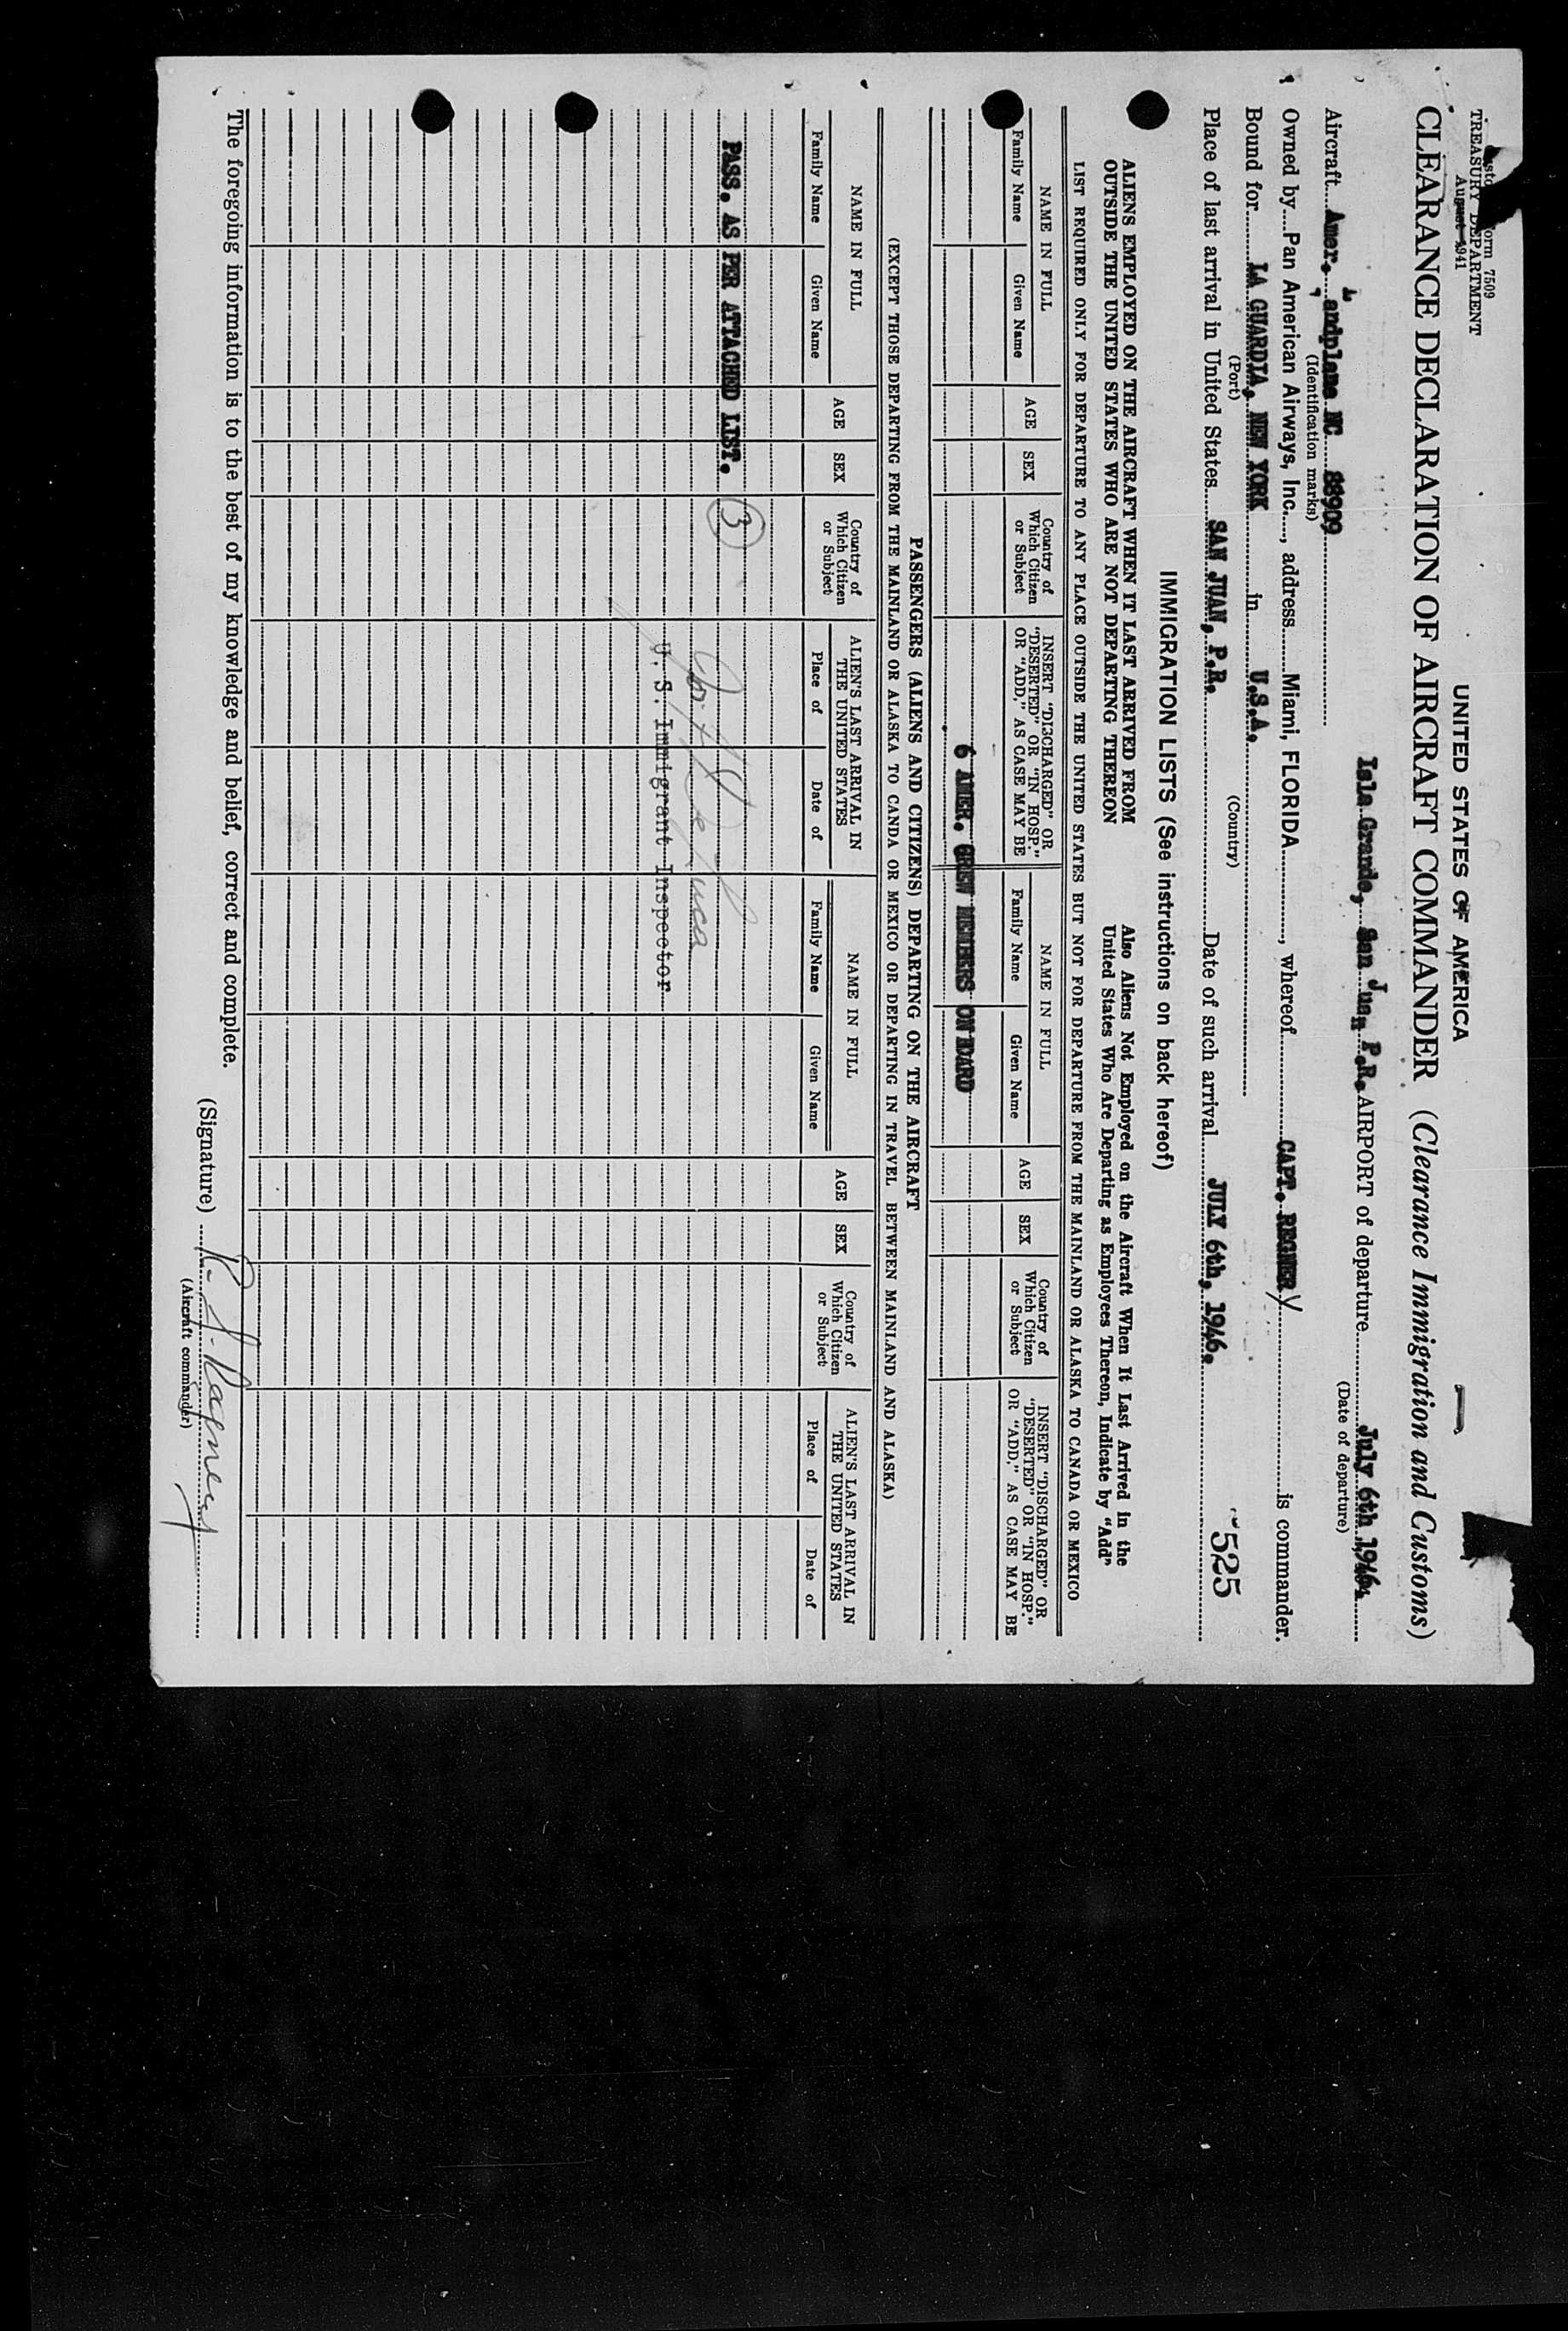 TREASURY DEPARTMENT
August 1941
UNITED STATES OF AMERICA
CLEARANCE DECLARATION OF AIRCRAFT COMMANDER (Clearance Immigration and Customs)
Isla Grande, San Juan P.R. AIRPORT of departure July 6th 1946.
(Date of departure)
Aircraft Amer. Landplane NC 88909
(Identification marks)
Owned by Pan American Airways, Inc., address Miami, FLORIDA, whereof CAPT. REGNER is commander.
Bound for LA GUARDIA, NEW YORK in U.S.A.
(Port) (Country)
Place of last arrival in United States SAN JUAN, P.R. Date of such arrival JULY 6th, 1946.
525
IMMIGRATION LISTS (See instructions on back hereof)
ALIENS EMPLOYED ON THE AIRCRAFT WHEN IT LAST ARRIVED FROM OUTSIDE THE UNITED STATES WHO ARE NOT DEPARTING THEREON
Also Aliens Not Employed on the Aircraft When It Last Arrived in the United States Who Are Departing as Employees Thereon, Indicate by "Add"
LIST REQUIRED ONLY FOR DEPARTURE TO ANY PLACE OUTSIDE THE UNITED STATES BUT NOT FOR DEPARTURE FROM THE MAINLAND OR ALASKA TO CANADA OR MEXICO
NAME IN FULL AGE SEX Country of Which Citizen or Subject INSERT "DISCHARGED" OR "DESERTED" OR "IN HOSP." OR "ADD," AS CASE MAY BE NAME IN FULL AGE SEX Country of Which Citizen or Subject INSERT "DISCHARGED" OR "DESERTED" OR "IN HOSP." OR "ADD," AS CASE MAY BE
Family Name Given Name Family Name Given Name
6 AMER. CREW MEMBERS ON BOARD
PASSENGERS (ALIENS AND CITIZENS) DEPARTING ON THE AIRCRAFT
(EXCEPT THOSE DEPARTING FROM THE MAINLAND OR ALASKA TO CANDA OR MEXICO OR DEPARTING IN TRAVEL BETWEEN MAINLAND AND ALASKA)
NAME IN FULL AGE SEX Country of Which Citizen or Subject ALIEN'S LAST ARRIVAL IN THE UNITED STATES NAME IN FULL AGE SEX Country of Which Citizen or Subject ALIEN'S LAST ARRIVAL IN THE UNITED STATES
Family Name Given Name Place of Date of Family Name Given Name Place of Date of
PASS. AS PER ATTACHED LIST. 3
U. S. Immigrant Inspector
The foregoing information is to the best of my knowledge and belief, correct and complete.
(Signature)
(Aircraft commander)